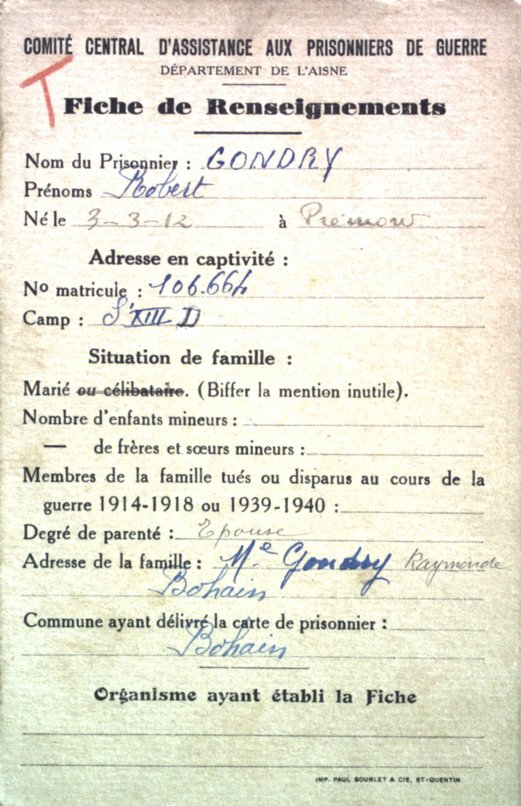 COMITÉ CENTRAL D'ASSISTANCE AUX PRISONNIERS DE GUERRE
DÉPARTEMENT DE L'AISNE
T
Fiche de Renseignements
Nom du Prisonnier : GONDRY
Prénoms Robert
Né le 3-3-12 à Prémont
Adresse en captivité :
No matricule : 106.664
Camp : S/XIII D
Situation de famille :
Marié ou célibataire. (Biffer la mention inutile).
Nombre d'enfants mineurs :
— de frères et sœurs mineurs :
Membres de la famille tués ou disparus au cours de la
guerre 1914-1918 ou 1939-1940 :
Degré de parenté : Epouse
Adresse de la famille : Me Gondry Raymonde
Bohain
Commune ayant délivré la carte de prisonnier :
Bohain
Organisme ayant établi la Fiche
IMP. PAUL BOURLET & CIE, ST-QUENTIN